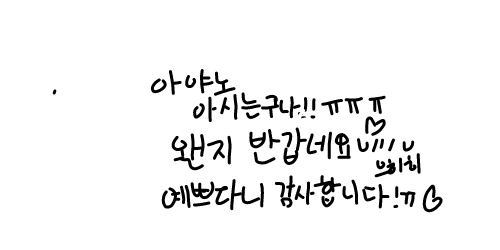 아야노
아시는구나!! ㅠㅠㅠ
왠지 반갑네요
쁘히히
예쁘다니 감사합니다!ㅠ